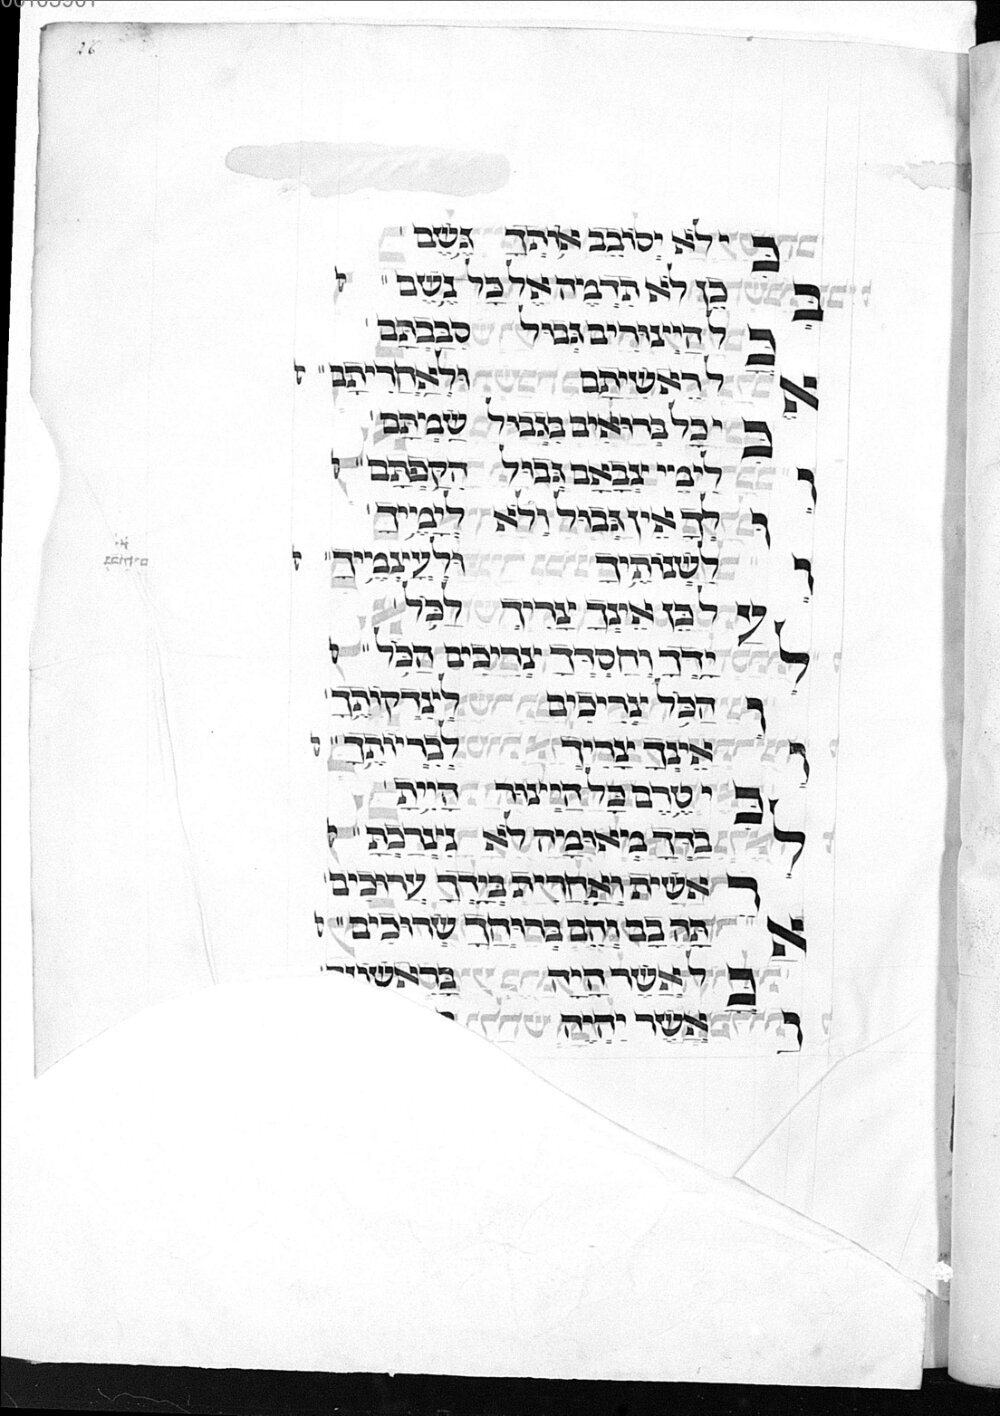 כִּי לֹא יְסוֹבֵב אוֹתְךָ גֶּשֶׁם
בְּכֵן לֹא תִדָּמֶה אֶל כָּל גֶּשֶׁם
כָּל הַיְצוּרִים גְּבוּל סִבַּבְתָּם
אֶל רֵאשִׁיתָם וּלְאַחֲרִיתָם
כִּי כָל בְּרוּאִים בִּגְבוּל שַׂמְתָּם
וְלִימֵי צְבָאָם גְּבוּל הִקַּפְתָּם
וּלְךָ אֵין גְּבוּל וְלֹא לְיָמֶיךָ
וְלִשְׁנוֹתֶיךָ וּלְעָצְמֶיךָ
עַל כֵּן אֵינְךָ צָרִיךְ לַכֹּל
לְיָדְךָ וְחַסְדְּךָ צְרִיכִים הַכֹּל
וְהַכֹּל צְרִיכִים לְצִדְקוֹתֶיךָ
וְאֵינְךָ צָרִיךְ לִבְרִיּוֹתֶיךָ
כִּי טֶרֶם כָּל הַיְצוּר הָיִיתָ
לְבַדְּךָ מְאוּמָה לֹא נִצְרַכְתָּ
רֵאשִׁית וְאַחֲרִית בְּיָדְךָ עֲרוּכִים
אַתָּה בָם וְהֵם בְּרוּחֲךָ שְׂרוּכִים
כָּל אֲשֶׁר הָיָה בְּרֵאשׁוֹנָה
וַאֲשֶׁר יִהְיֶה